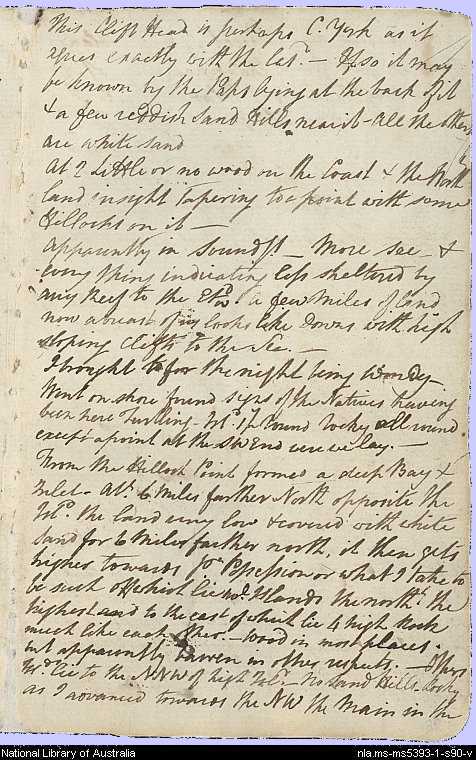 This Clift Head is perhaps C. York as it
agrees exactly with the Latd. — If so it may
be known by the Paps lying at the back of it
& a few reddish Sand Hills near it - All the others
are white sand
At 2 Little or no wood on the Coast & the North
land in sight tapering to a point with some
Hillocks on it —
Apparently in Soundgs — More sea - &
every thing indicating less sheltered by
any Reef to the Etwd a few miles of land
now abreast of us looks like Downs with high
sloping Clifts to the Sea. —
Thought for the night being Windy
Went on shore found signs of the Natives having
been here Turtling - Isd. Round Rocky all round
except a point at the SW End were we lay. —
From the Hillock Point formed a deep Bay &
Inlet - Abt. 6 Miles farther North opposite the
Isd. the land very low & covered with white
Sand for 6 Miles farther north, it then gets
higher towards Possession or what I take to
be such off which lie Islands the northt. the
highest and to the east of which lie 4 high Rock
much like each other. — Wood in most places.
but apparently barren in other respects. — Offers
Isd. lie to the NNW of high Isd. - No Sand Hills
as I advanced towards the NW the Main in the
National Library of Australia
nla.ms-ms5393-1-s90-v